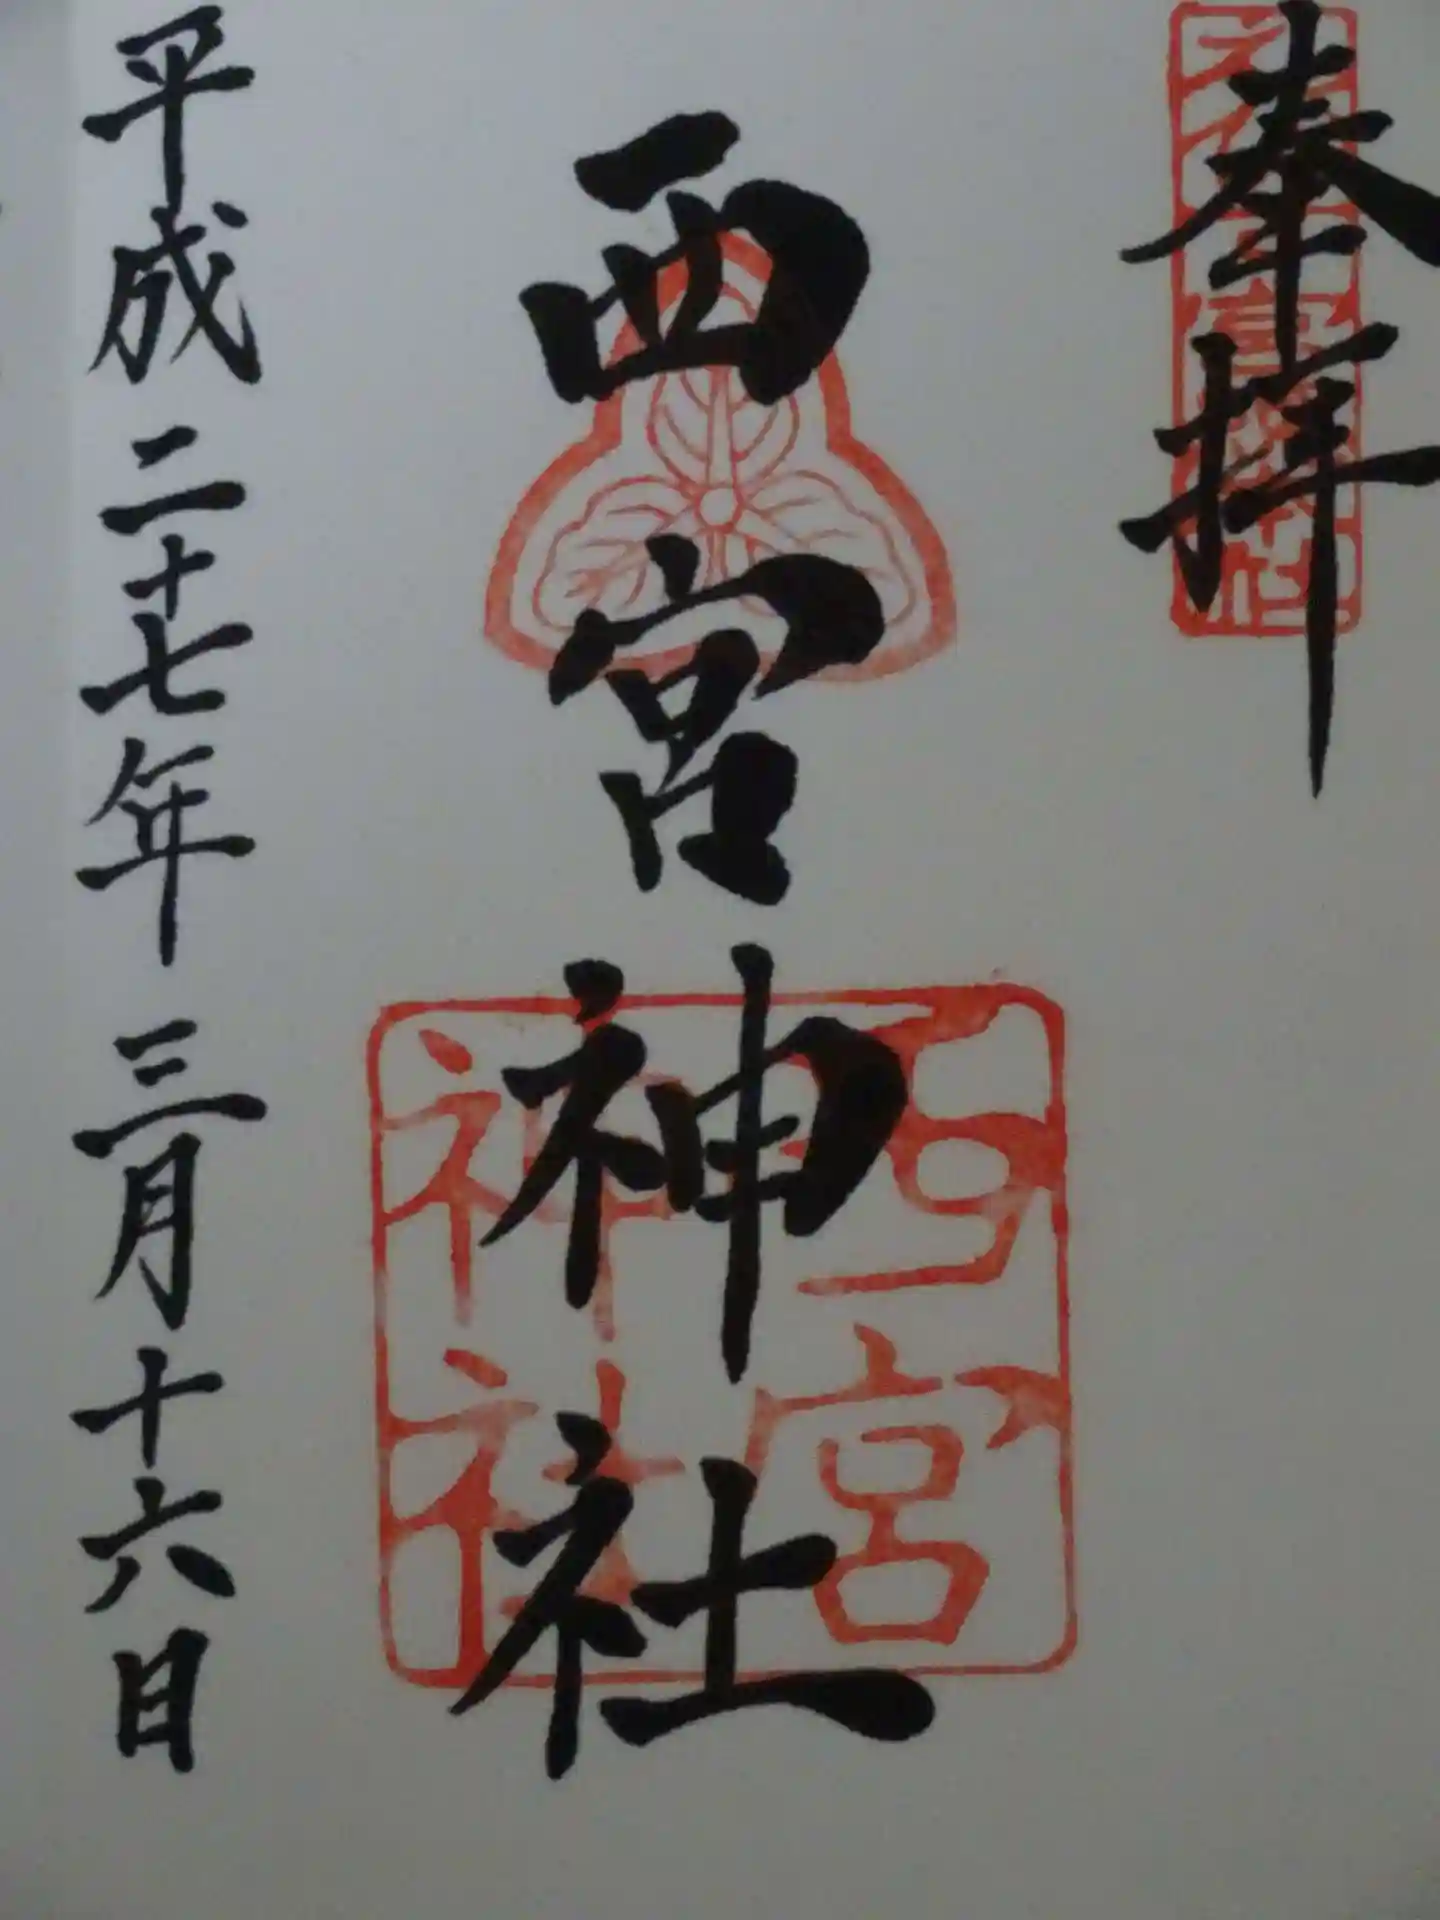 奉拝
西宮神社
西宮
神社
平成二十七年三月十六日